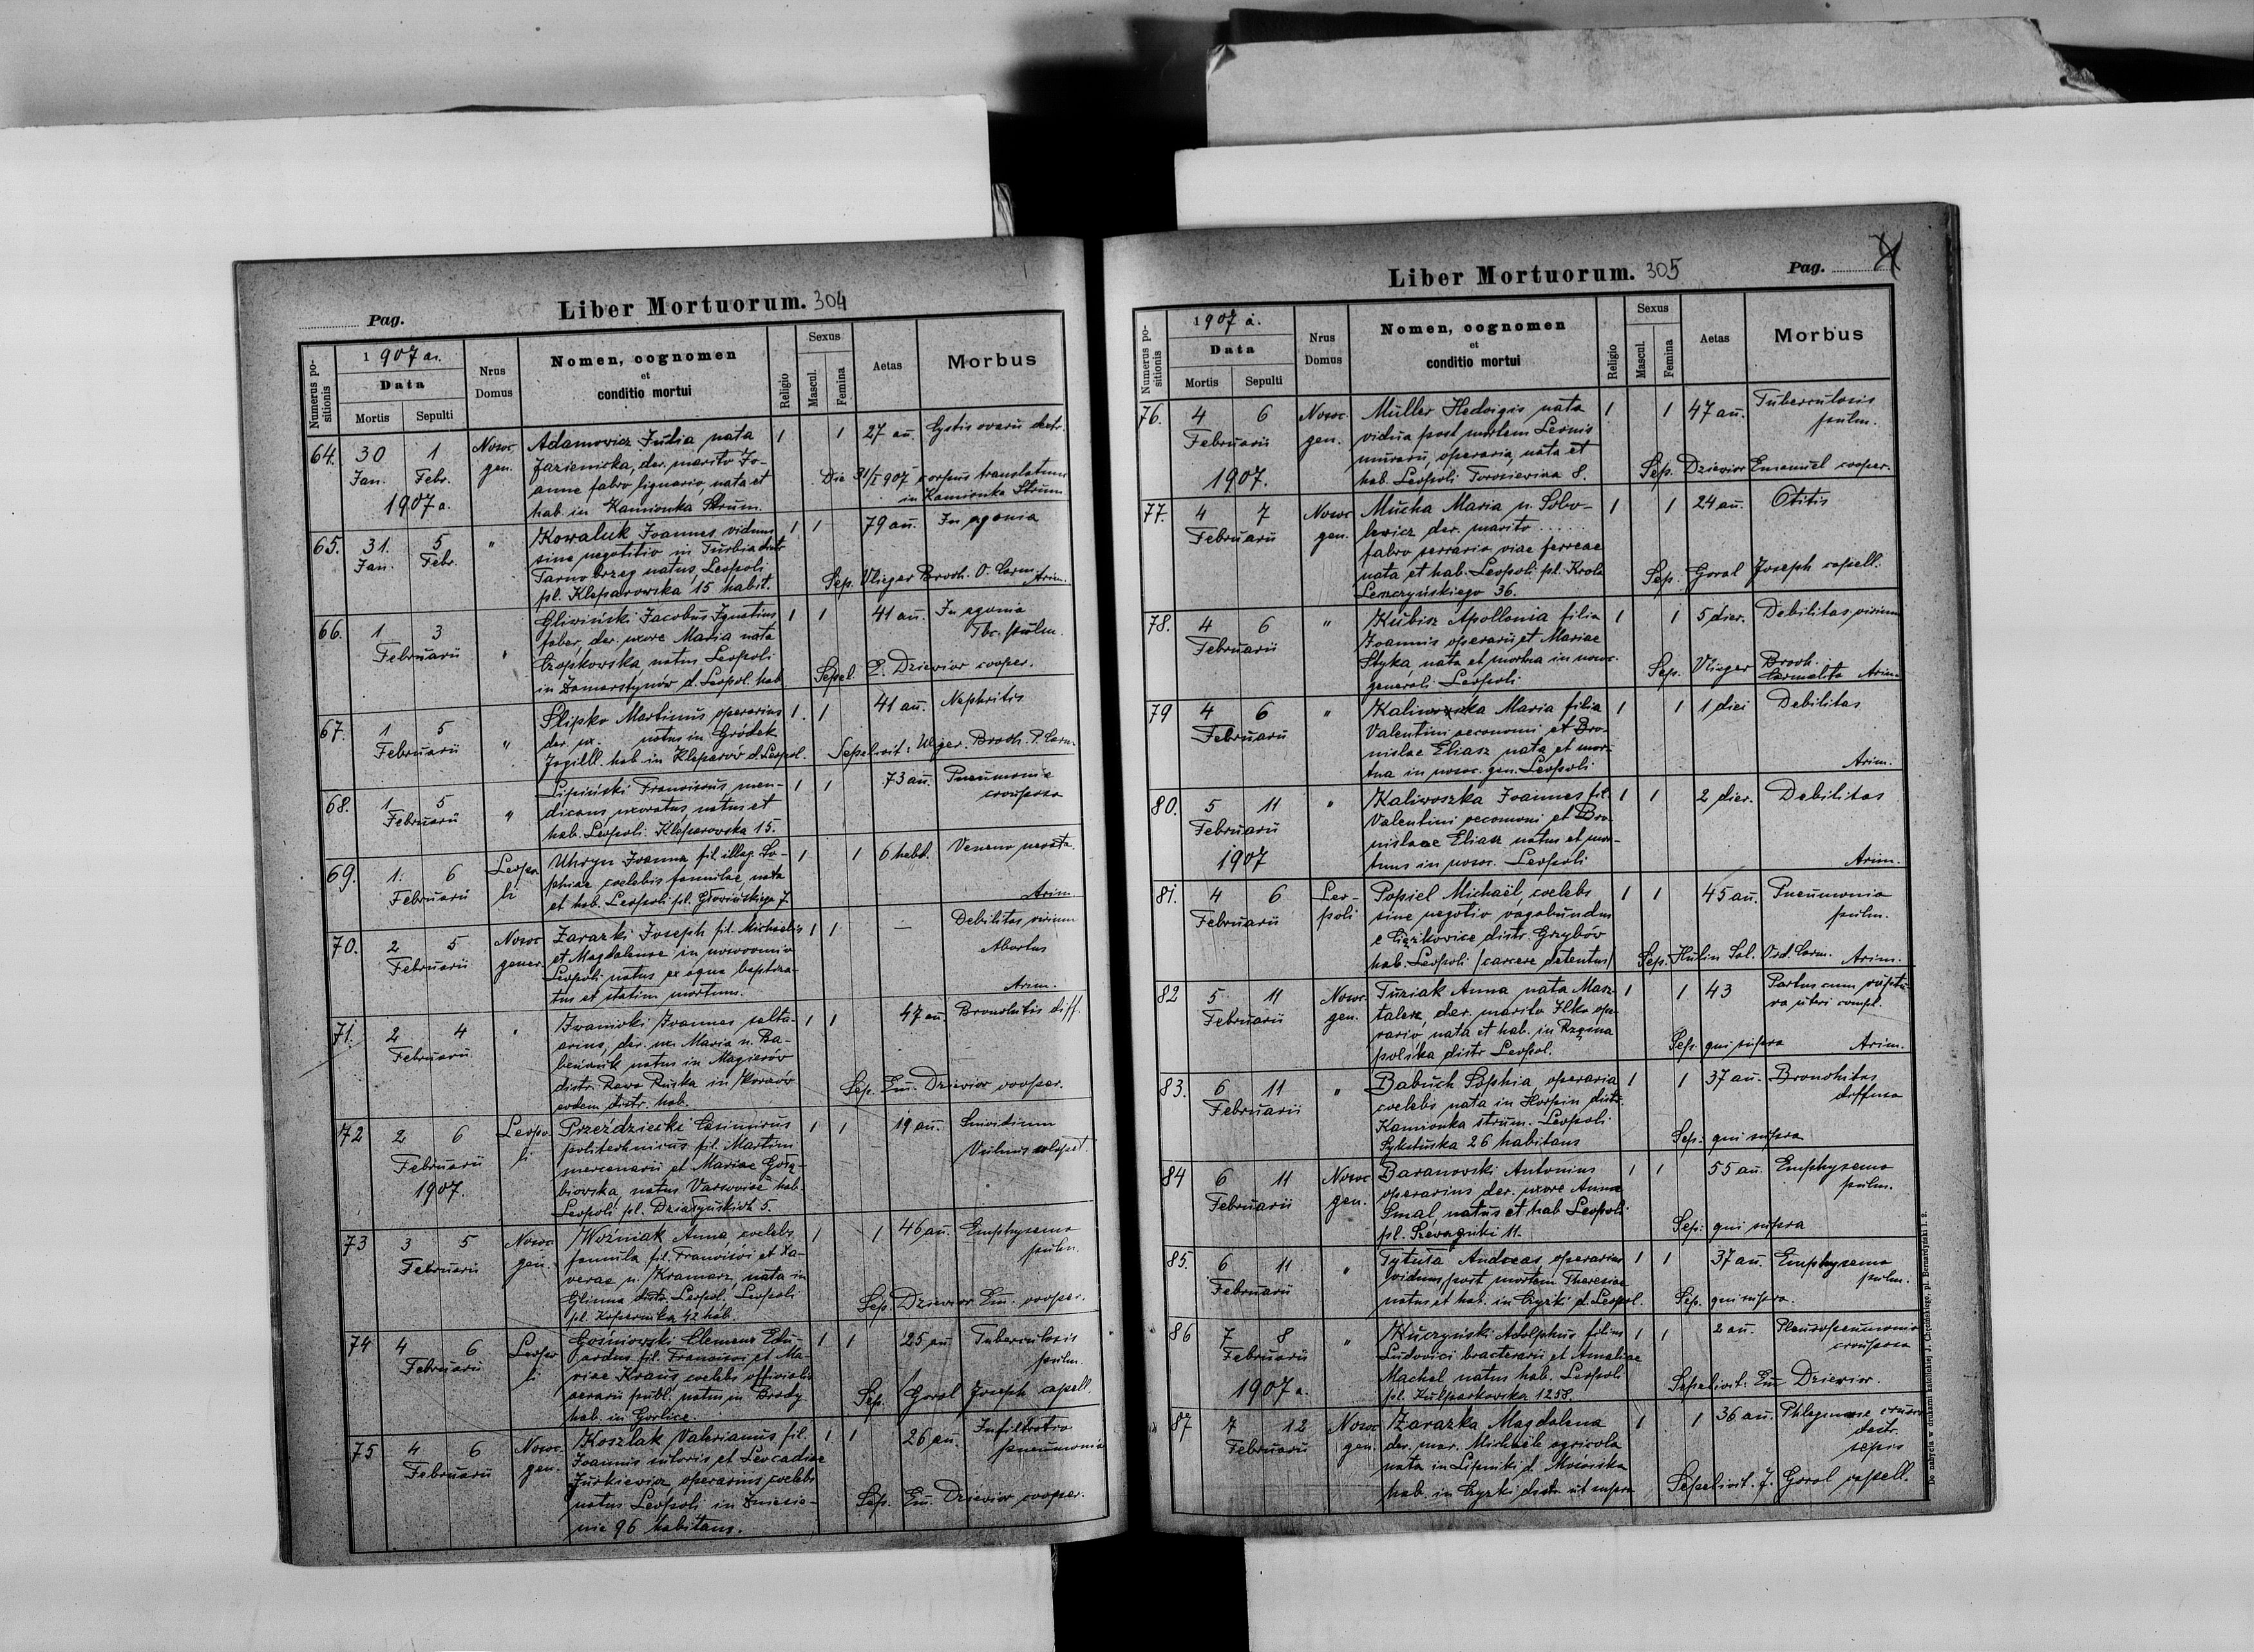 Pag.
Liber Mortuorum. 304
Numerus positionis
1907 a.
Data
Mortis
Sepulti
Nrus Domus
Nomen, cognomen
et
conditio mortui
Religio
Sexus
Mascul.
Femina
Aetas
Morbus
64. 30 1 Nosoc. Adamowicz Julia nata 1 1 27 an. Cystis ovarii dextr.
Jan. Febr. gen. der. marito Jo-
anne fabro lignario, nata et Die 31/I 907 corpus translatum
1907 a. hab. in Kamionka Strum. in Kamionka Strum
65. 31. 5 " Kowaluk Joannes viduus 1 1 79 an. In agonia
Jan. Febr. sine negotio in Turbia distr.
Tarnobrzeg natus, Leopoli
pl. Kleparowska 15 habit. Sep. Vlieger Broch. O. Carm. Arim.
66. 1 3 " Gliwiński Jacobus Ignatius 1 1 41 an. In agonia
Februarii faber, der. uxore Maria nata Tbc. pulm.
Czopkowska natus Leopoli
in Zamarstynów d. Leopol. hab. Sepel. E. Dziewior cooper.
67. 1 5 " Slipko Martinus operarius 1. 1 41 an. Nephritis
Februarii der. ux. natus in Gródek
Jagiell. hab. in Kleparów d. Leopol. Sepelivit: Vlieger. Broch. P. Carm.
68. 1 5 " Lipiński Franciscus, men- 1 1 73 an. Pneumonia
Februarii dicans, uxoratus, natus et crouposa
hab. Leopoli Kleparowska 15.
69. 1. 6 Leopo- Uhryn Joanna fil. illeg. So- 1 1 6 hebd. Veneno necata
Februarii li phiae coelebis famulae nata
et hab. Leopoli pl. Głowińskiego 7. Arim.
70. 2 5 Nosoc. Zarazki Joseph fil. Michaelis 1 1 — Debilitas virium
Februarii gener. et Magdalenae in nosocomio Abortus
Leopoli natus ex aqua baptiza-
tus et statim mortuus. Arim.
71. 2 4 " Iwanicki Joannes salta- 1 1 47 an. Bronchitis diff.
Februarii der. ux. Maria n. Ba-
natus in Magierów
distr. Rawa Ruska in
eodem distr. hab. Sep. Em. Dziewior cooper.
72 2 6 Leopo- Przeździecki Casimirus 1 1 19 an. Suicidium
Februarii li politechnicus fil. Martini Vulnus sclopet.
mercenarii et Mariae Gołę-
1907. biowska, natus Varsoviae hab.
Leopoli pl. Dziatyńskich 5.
73 3 5 Nosoc. Woźniak Anna, coelebs 1 1 46 an. Emphysema
Februarii gen. famula, fil. Francisci et Xa- pulm.
verae n. Kramarz, nata in
Glinna distr. Leopol. Leopoli
pl. Kopernika 42 hab. Sep. Dziewior Em. cooper.
74 4 6 Leopo- Gośniowski Clemens Edu- 1 1 25 an Tuberculosis
Februarii li ardus fil. Francisci et Ma- pulm.
riae Kraus coelebs officialis
aerarii publ. natus in Brody Sep. Goral Joseph capell.
hab. in Gorlice
75 4 6 Nosoc. Koszlak Valerianus fil. 1 1 26 an. Infiltratio
Februarii gen. Joannis sutoris et Leocadiae pneumonia
Jurkiewicz, operarius coelebs
natus Leopoli in Zniesie- Sep. Em. Dziewior cooper.
nie 96 habitans.
Liber Mortuorum. 305
Pag.
Numerus positionis
1907 a.
Data
Mortis
Sepulti
Nrus Domus
Nomen, cognomen
et
conditio mortui
Religio
Sexus
Mascul.
Femina
Aetas
Morbus
76. 4 6 Nosoc. Müller Hedvigis nata 1 1 47 an. Tuberculosis
Februarii gen. vidua post mortem Leonis pulm.
murarii, operaria, nata et
1907. hab. Leopoli Torosiewicza 8. Sep. Dziewior Emanuel cooper.
77. 4 7 Nosoc. Mucha Maria n. Sobo- 1 1 24 an. Otitis
Februarii gen. lewicz der. marito ......
fabro serrario viae ferreae
nata et hab. Leopoli pl. Króla Sep. Goral Joseph capell.
Leszczyńskiego 36.
78. 4 6 " Kubisz Apollonia filia 1 1 5 dier. Debilitas virium
Februarii Joannis operarii et Mariae
Styka nata et mortua in nosoc. Sep. Vlieger Broch.
generali Leopoli Carmelita Arim.
79 4 6 " Maria filia 1 1 1 diei Debilitas
Februarii Valentini oeconomi et Bro-
nislae Eliasz nata et mor-
tua in nosoc. gen. Leopoli Arim.
80. 5 11 " Kaliwoszka Joannes fil. 1 1 2 dier. Debilitas
Februarii Valentini oeconomi et Bro-
nislaae Eliasz natus et mor-
1907 tuus in nosoc. Leopoli Arim.
81. 4 6 Leo- Popiel Michaël, coelebs 1 1 45 an. Pneumonia
Februarii poli sine negotio vagabundus pulm.
e Ciężkowice distr. Grzybów
hab. Leopoli (carcere detentus) Sep. Hulin Sal. Ord. Carm. Arim.
82 5 11 Nosoc. Tuziak Anna nata Masz- 1 1 43 Partus cum ruptu-
Februarii gen. talerz, der. marito Ilko ope- ra uteri compl.
rario, nata et hab. in Rzęsna
polska distr Leopol. Sep. qui supra Arim.
83. 6 11 " Babuch Sophia, operaria 1 1 37 an. Bronchitis
Februarii coelebs nata in Horpin distr. diffusa
Kamionka strum. Leopoli
Sykstuska 26 habitans Sep: qui supra
84 6 11 Nosoc. Baranowski Antonius 1 1 55 an. Emphysema
Februarii gen. operarius der. uxore Anna pulm.
Smal, natus et hab Leopoli
pl. 11. Sep: qui supra
85. 6 11 " Tytuła Andreas, operarius 1 1 37 an. Emphysema
Februarii viduus post mortem Theresiae pulm.
natus et hab. in Czyżki d. Leopol. Sep. qui supra.
86 7 8 " Huczyński Adolphus filius 1 1 2 an. Pleuropneumonia
Februarii Ludovici bracterarii et Amaliae crouposa
Machel natus hab. Leopoli
1907 a. pl. Kulparkowska 1258. Sepelivit: Em Dziewior.
87 7 12 Nosoc. Zarazka Magdalena 1 1 36 an. Phlegmone cruris
Februarii gen. der. mar. Michaële agricola dextr.
nata in Lipniki d. Mościska sepsis
hab. in Czyżki distr. ut supra Sepelivit. J. Goral capell.
Do nabycia w drukarni katolickiej J. Chęcińskiego, pl. Bernardyński l. 2.